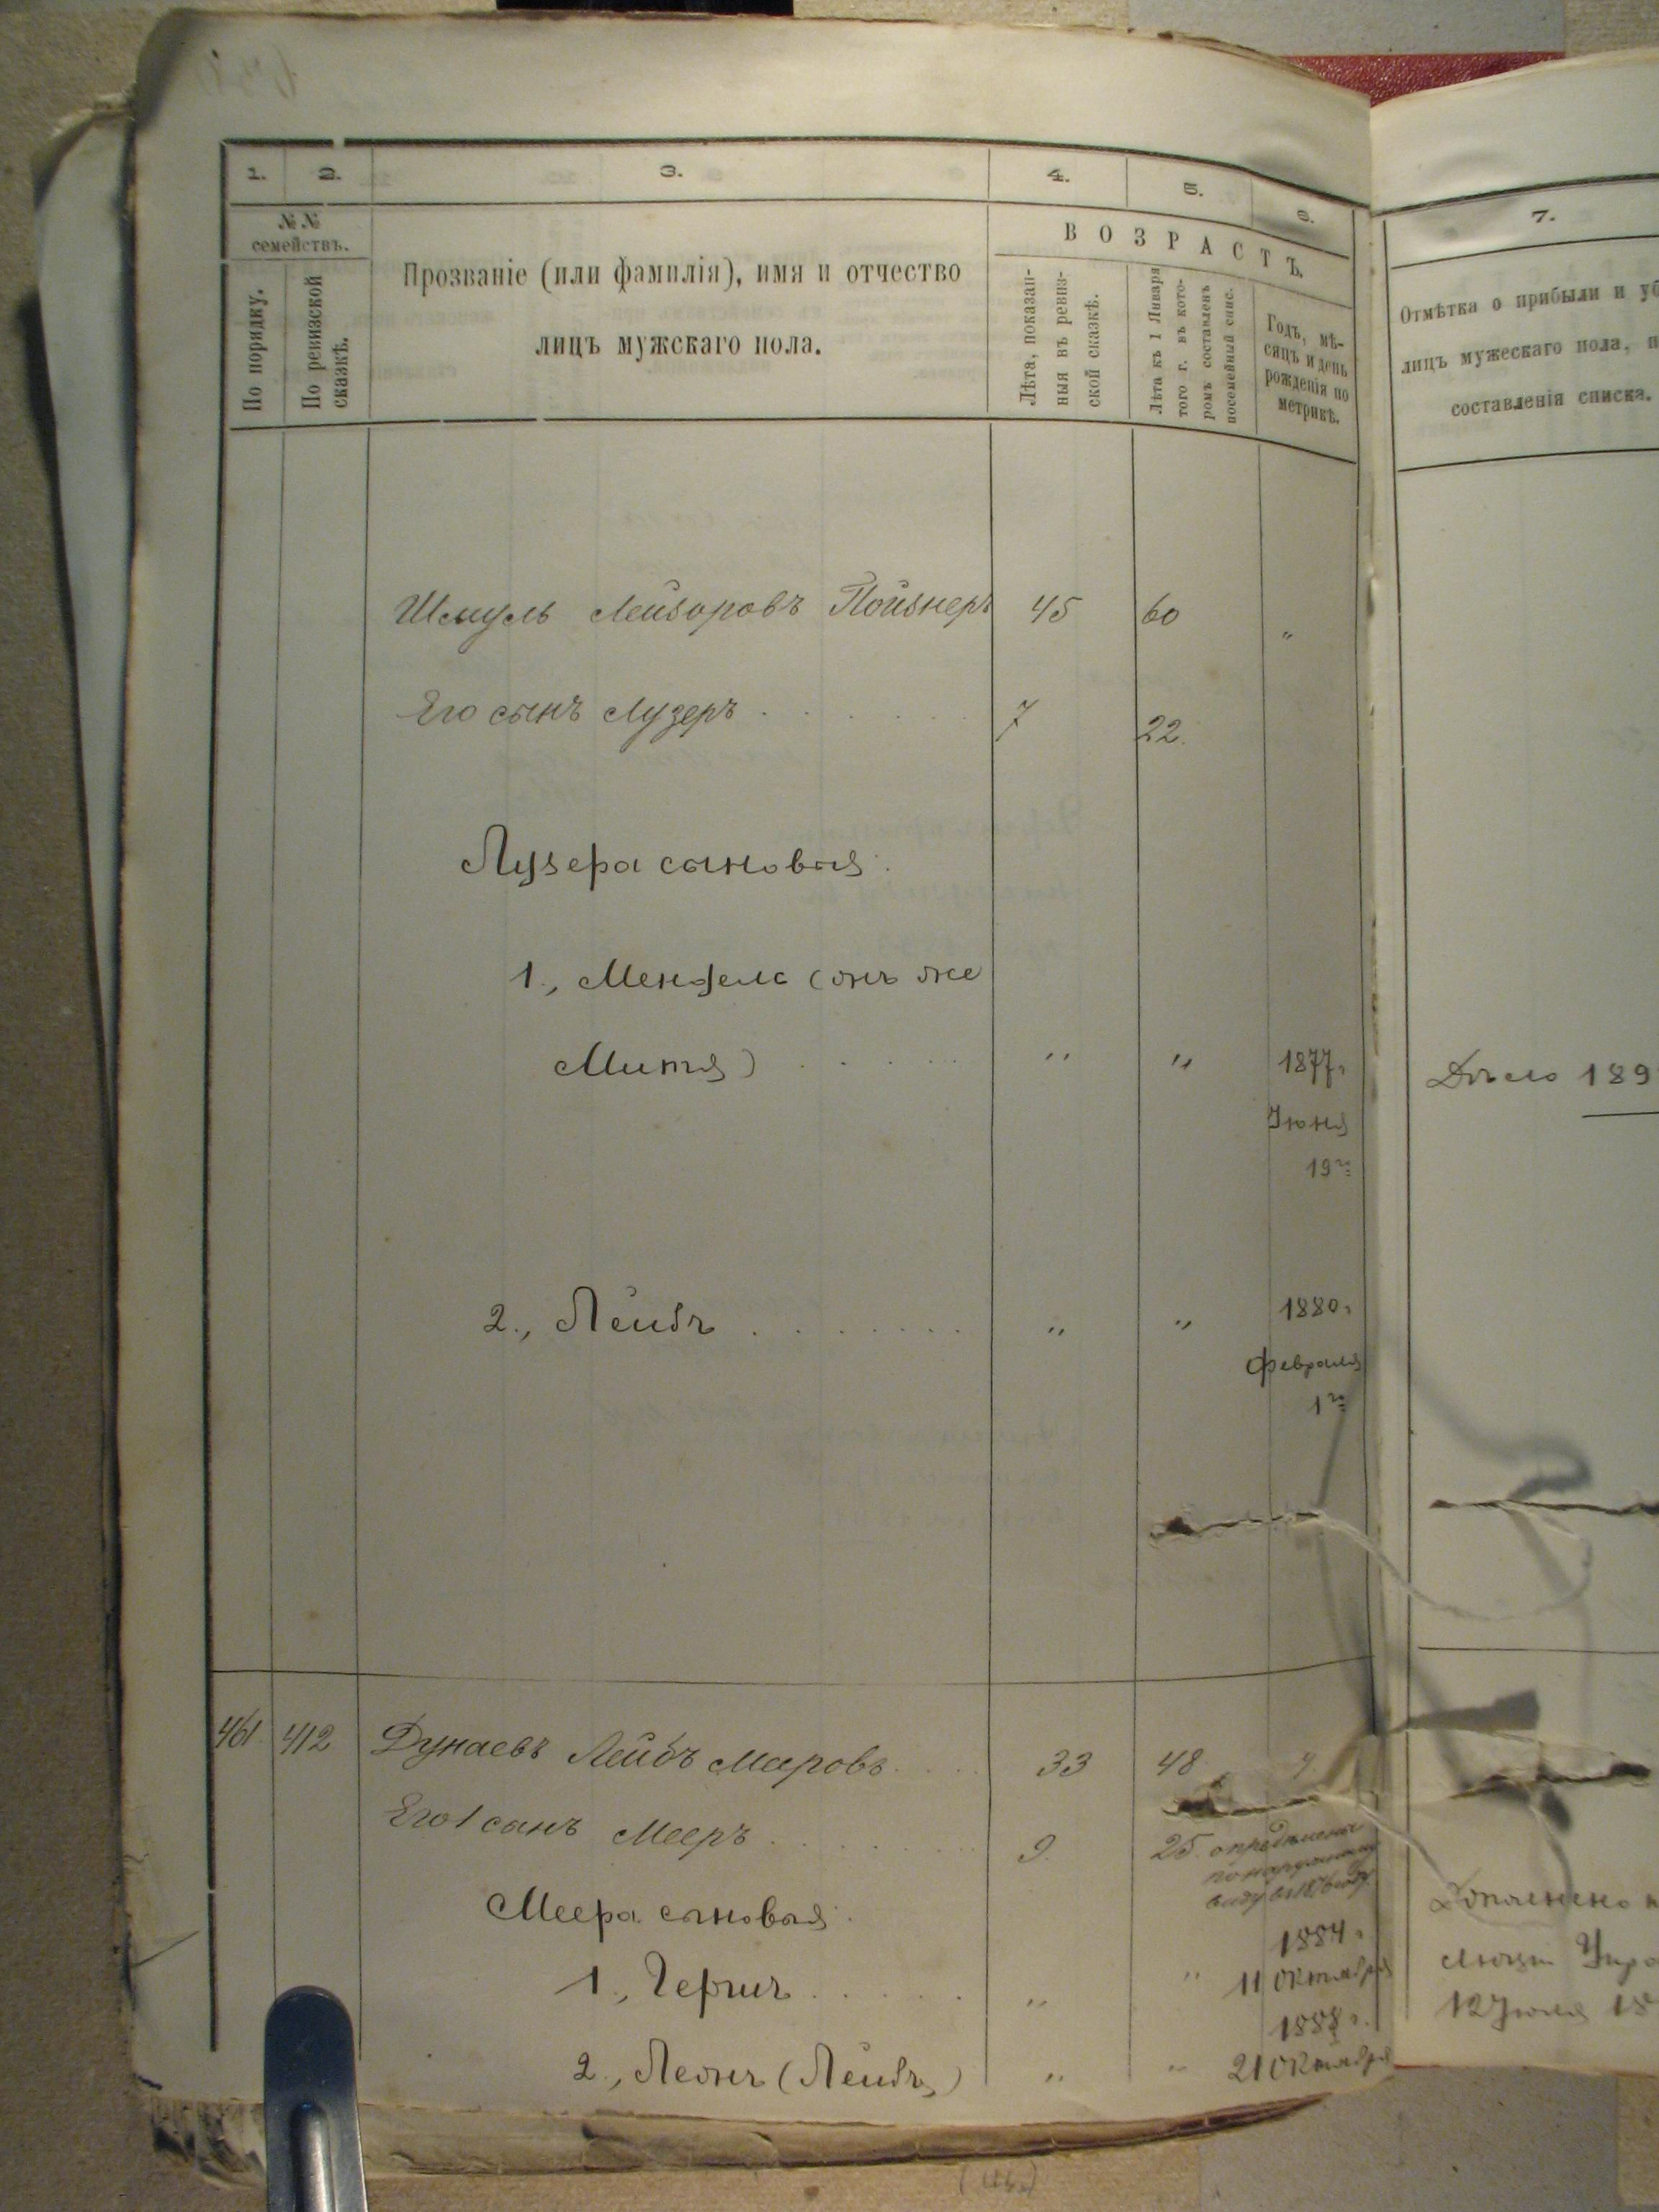 1. 2. 3. 4. 5. 6. 7.
№№ семействъ.
По порядку.
По ревизской сказкѣ.
Прозваніе (или фамилія), имя и отчество
лицъ мужскаго пола.
ВОЗРАСТЪ.
Лѣта, показан-
ныя въ ревиз-
ской сказкѣ.
Лѣта къ 1 Января
того г. въ кото-
ромъ составленъ
посемейный спис.
Годъ, мѣ-
сяцъ и день
рожденія по
метрикѣ.
Отмѣтка о прибыли и уб
лицъ мужескаго пола, п
составленія списка.
Шмуль Лейзоровъ Пойзнеръ 45 60 "
Его сынъ Лузеръ . . . . . 7 22.
Лузера сыновья:
1., Мендель (онъ же
Митя) . . . . . " " 1877 г.
Іюня
19 г.
Дѣло 189
2., Лейбъ . . . . . . . " " 1880 г.
Февраля
1 г.
461. 412. Дунаевъ Лейбъ Мееровъ . . . . 33 48.
Его 1 сынъ Мееръ . . . . . . 9. 25. опредѣлены
по наружному
виду въ 1876 году.
Меера сыновья:
1884 г.
1., Герши . . . . . " " 11 Октября
1888 г.
2., Леонъ (Лейбъ) " " 21 Октября
Дополнено
12 Іюля 18